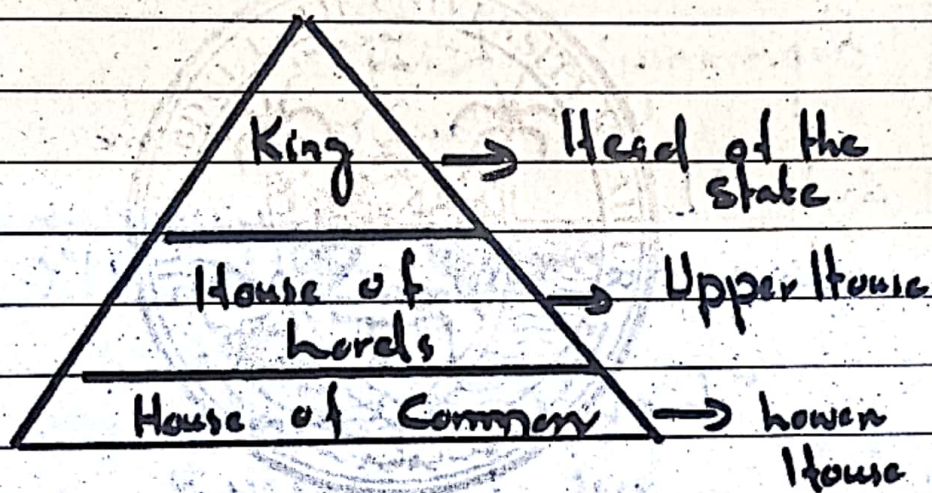 King → Head of the
state
House of → Upper House
Lords
House of Common → Lower
House